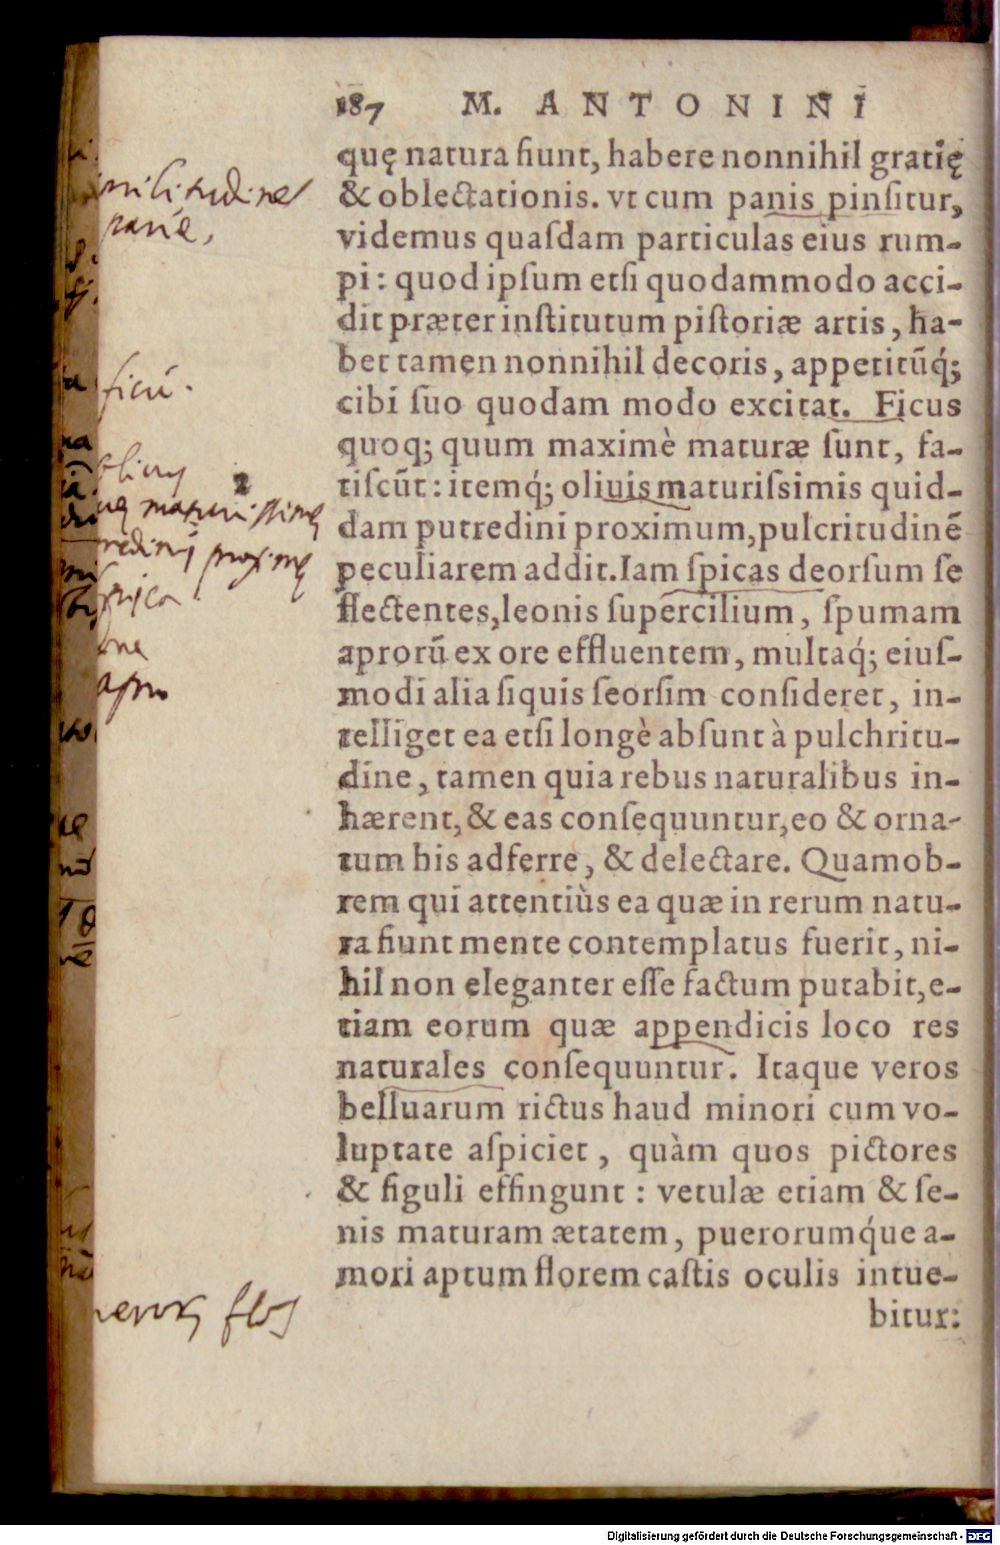 187 M. ANTONINI
quę natura fiunt, habere nonnihil gratię
& oblectationis. vt cum panis pinſitur,
videmus quaſdam particulas eius rum-
pi: quod ipſum etſi quodammodo acci-
dit præter inſtitutum piſtoriæ artis, ha-
bet tamen nonnihil decoris, appetitūq́;
cibi ſuo quodam modo excitat. Ficus
quoq; quum maximè maturæ ſunt, fa-
tiſcūt: itemq́; oliuis maturiſsimis quid-
dam putredini proximum, pulcritudinē
peculiarem addit. Iam ſpicas deorſum ſe
flectentes, leonis ſupercilium, ſpumam
aprorū ex ore effluentem, multaq́; eiuſ-
modi alia ſiquis ſeorſim conſideret, in-
telliget ea etſi longè abſunt à pulchritu-
dine, tamen quia rebus naturalibus in-
hærent, & eas conſequuntur, eo & orna-
tum his adferre, & delectare. Quamob-
rem qui attentiùs ea quæ in rerum natu-
ra fiunt mente contemplatus fuerit, ni-
hil non eleganter eſſe factum putabit, e-
tiam eorum quæ appendicis loco res
naturales conſequuntur. Itaque veros
belluarum rictus haud minori cum vo-
luptate aſpiciet, quàm quos pictores
& figuli effingunt: vetulæ etiam & ſe-
nis maturam ætatem, puerorumq́ue a-
mori aptum florem caſtis oculis intue-
bitur:
militudines
paníe,
ficū.
2
maturissimę
proximę
spica
apro
flos
Digitalisierung gefördert durch die Deutsche Forschungsgemeinschaft - DFG